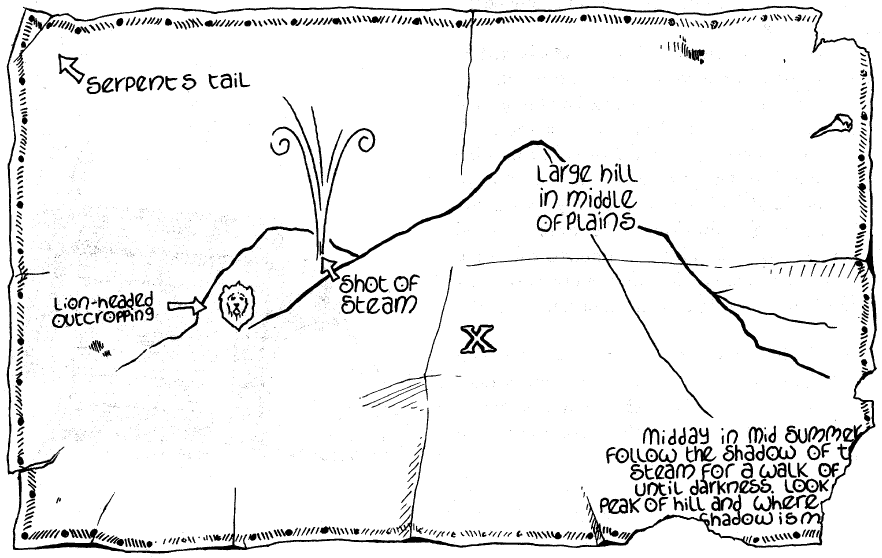 Serpents tail
Large hill
in middle
of Plains
Shot of
Steam
Lion-headed
outcropping
X
Midday in mid Summer
Follow the Shadow of t
Steam for a walk of
until darkness. Look
Peak of hill and where
Shadow is m